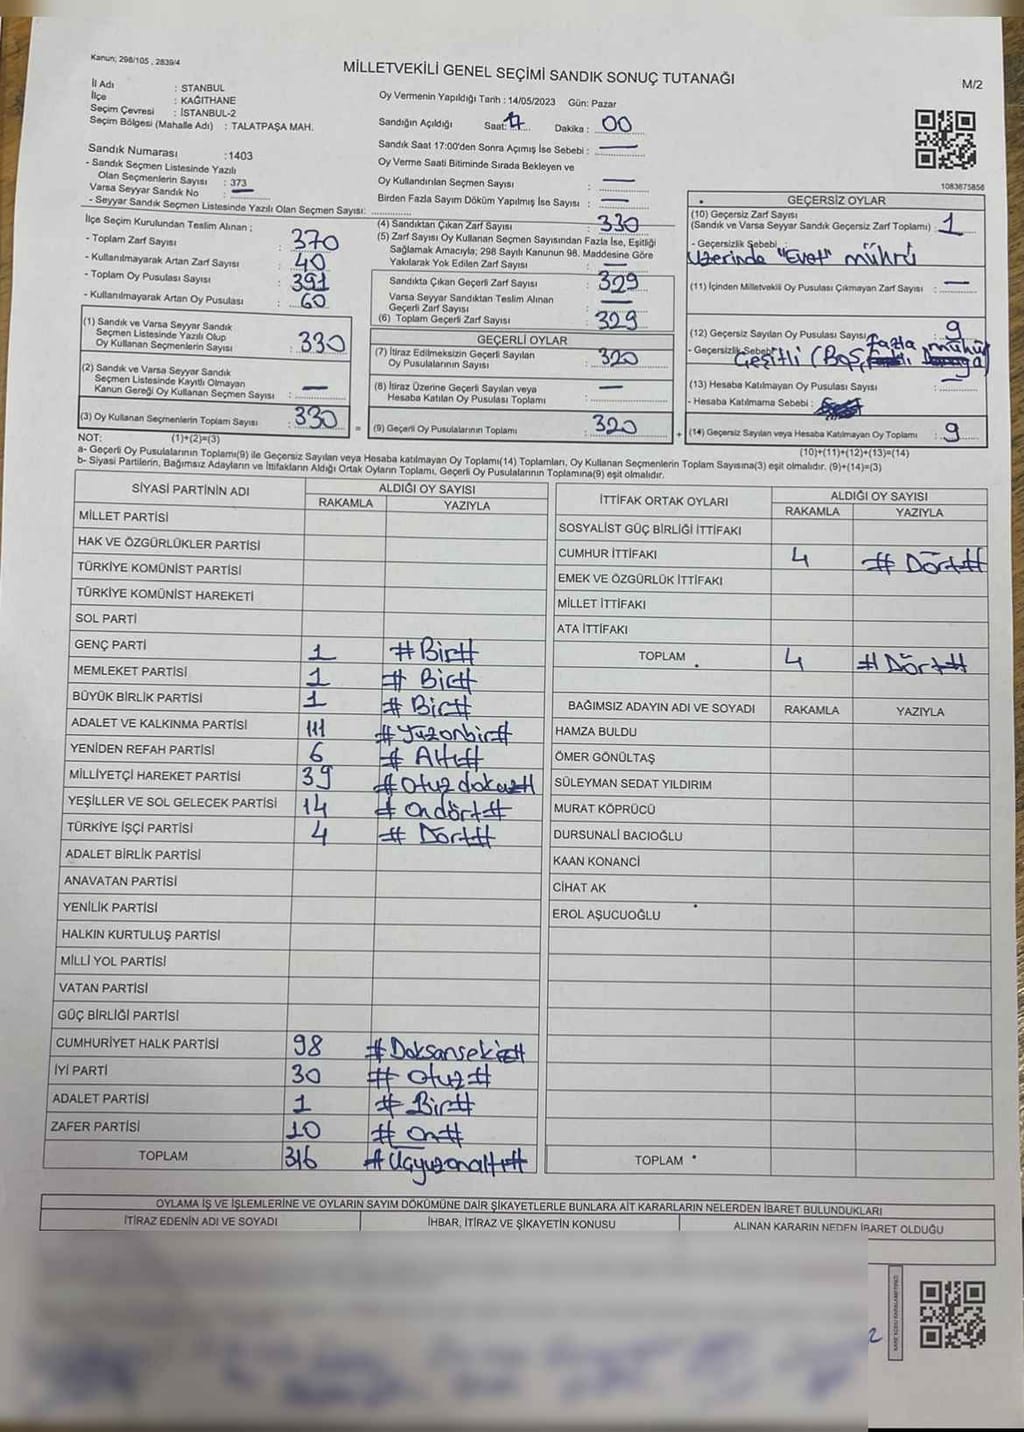 Kanun; 298/105 , 2839/4
MİLLETVEKİLİ GENEL SEÇİMİ SANDIK SONUÇ TUTANAĞI
M/2
İl Adı : STANBUL
İlçe : KAĞITHANE
Seçim Çevresi : İSTANBUL-2
Seçim Bölgesi (Mahalle Adı) : TALATPAŞA MAH.
Sandık Numarası :1403
- Sandık Seçmen Listesinde Yazılı
Olan Seçmenlerin Sayısı : 373
Varsa Seyyar Sandık No : —
- Seyyar Sandık Seçmen Listesinde Yazılı Olan Seçmen Sayısı:
Oy Vermenin Yapıldığı Tarih : 14/05/2023 Gün: Pazar
Sandığın Açıldığı Saat: 17 Dakika : 00
Sandık Saat 17:00'den Sonra Açımış İse Sebebi : —
Oy Verme Saati Bitiminde Sırada Bekleyen ve
Oy Kullandırılan Seçmen Sayısı : —
Birden Fazla Sayım Döküm Yapılmış İse Sayısı : —
1083675856
İlçe Seçim Kurulundan Teslim Alınan ;
- Toplam Zarf Sayısı : 370
- Kullanılmayarak Artan Zarf Sayısı : 40
- Toplam Oy Pusulası Sayısı : 391
- Kullanılmayarak Artan Oy Pusulası : 60
(1) Sandık ve Varsa Seyyar Sandık
Seçmen Listesinde Yazılı Olup
Oy Kullanan Seçmenlerin Sayısı : 330
(2) Sandık ve Varsa Seyyar Sandık
Seçmen Listesinde Kayıtlı Olmayan
Kanun Gereği Oy Kullanan Seçmen Sayısı : —
(3) Oy Kullanan Seçmenlerin Toplam Sayısı : 330
(4) Sandıktan Çıkan Zarf Sayısı : 330
(5) Zarf Sayısı Oy Kullanan Seçmen Sayısından Fazla İse, Eşitliği
Sağlamak Amacıyla; 298 Sayılı Kanunun 98. Maddesine Göre
Yakılarak Yok Edilen Zarf Sayısı : —
Sandıkta Çıkan Geçerli Zarf Sayısı : 329
Varsa Seyyar Sandıktan Teslim Alınan
Geçerli Zarf Sayısı : —
(6) Toplam Geçerli Zarf Sayısı : 329
GEÇERLİ OYLAR
(7) İtiraz Edilmeksizin Geçerli Sayılan
Oy Pusulasının Sayısı : 320
(8) İtiraz Üzerine Geçerli Sayılan veya
Hesaba Katılan Oy Pusulası Toplamı : —
= (9) Geçerli Oy Pusulalarının Toplamı : 320
GEÇERSİZ OYLAR
(10) Geçersiz Zarf Sayısı
(Sandık ve Varsa Seyyar Sandık Geçersiz Zarf Toplamı) : 1
- Geçersizlik Sebebi :
Üzerinde "Evet" mührü
(11) İçinden Milletvekili Oy Pusulası Çıkmayan Zarf Sayısı : —
(12) Geçersiz Sayılan Oy Pusulası Sayısı : 9
- Geçersizlik Sebebi : Çeşitli (Boş, Fazla mühür
(13) Hesaba Katılmayan Oy Pusulası Sayısı : —
- Hesaba Katılmama Sebebi :
+ (14) Geçersiz Sayılan veya Hesaba Katılmayan Oy Toplamı : 9
NOT: (1)+(2)=(3)
(10)+(11)+(12)+(13)=(14)
a- Geçerli Oy Pusulalarının Toplamı(9) ile Geçersiz Sayılan veya Hesaba katılmayan Oy Toplamı(14) Toplamları, Oy Kullanan Seçmenlerin Toplam Sayısına(3) eşit olmalıdır. (9)+(14)=(3)
b- Siyasi Partilerin, Bağımsız Adayların ve İttifakların Aldığı Ortak Oyların Toplamı, Geçerli Oy Pusulalarının Toplamına(9) eşit olmalıdır.
SİYASİ PARTİNİN ADI ALDIĞI OY SAYISI
RAKAMLA YAZIYLA
MİLLET PARTİSİ
HAK VE ÖZGÜRLÜKLER PARTİSİ
TÜRKİYE KOMÜNİST PARTİSİ
TÜRKİYE KOMÜNİST HAREKETİ
SOL PARTİ
GENÇ PARTİ 1 #Bir#
MEMLEKET PARTİSİ 1 # Bir#
BÜYÜK BİRLİK PARTİSİ 1 # Bir#
ADALET VE KALKINMA PARTİSİ 111 #Yüzonbir#
YENİDEN REFAH PARTİSİ 6 # Altı#
MİLLİYETÇİ HAREKET PARTİSİ 39 #Otuzdokuz#
YEŞİLLER VE SOL GELECEK PARTİSİ 14 # Ondört#
TÜRKİYE İŞÇİ PARTİSİ 4 # Dört#
ADALET BİRLİK PARTİSİ
ANAVATAN PARTİSİ
YENİLİK PARTİSİ
HALKIN KURTULUŞ PARTİSİ
MİLLİ YOL PARTİSİ
VATAN PARTİSİ
GÜÇ BİRLİĞİ PARTİSİ
CUMHURİYET HALK PARTİSİ 98 #Doksansekiz#
İYİ PARTİ 30 # Otuz#
ADALET PARTİSİ 1 # Bir#
ZAFER PARTİSİ 10 # On#
TOPLAM 316 #Üçyüzonaltı#
İTTİFAK ORTAK OYLARI ALDIĞI OY SAYISI
RAKAMLA YAZIYLA
SOSYALİST GÜÇ BİRLİĞİ İTTİFAKI
CUMHUR İTTİFAKI 4 # Dört#
EMEK VE ÖZGÜRLÜK İTTİFAKI
MİLLET İTTİFAKI
ATA İTTİFAKI
TOPLAM 4 # Dört#
BAĞIMSIZ ADAYIN ADI VE SOYADI RAKAMLA YAZIYLA
HAMZA BULDU
ÖMER GÖNÜLTAŞ
SÜLEYMAN SEDAT YILDIRIM
MURAT KÖPRÜCÜ
DURSUNALİ BACIOĞLU
KAAN KONANCİ
CİHAT AK
EROL AŞUCUOĞLU
TOPLAM
OYLAMA İŞ VE İŞLEMLERİNE VE OYLARIN SAYIM DÖKÜMÜNE DAİR ŞİKAYETLERLE BUNLARA AİT KARARLARIN NELERDEN İBARET BULUNDUKLARI
İTİRAZ EDENİN ADI VE SOYADI İHBAR, İTİRAZ VE ŞİKAYETİN KONUSU ALINAN KARARIN NEDEN İBARET OLDUĞU